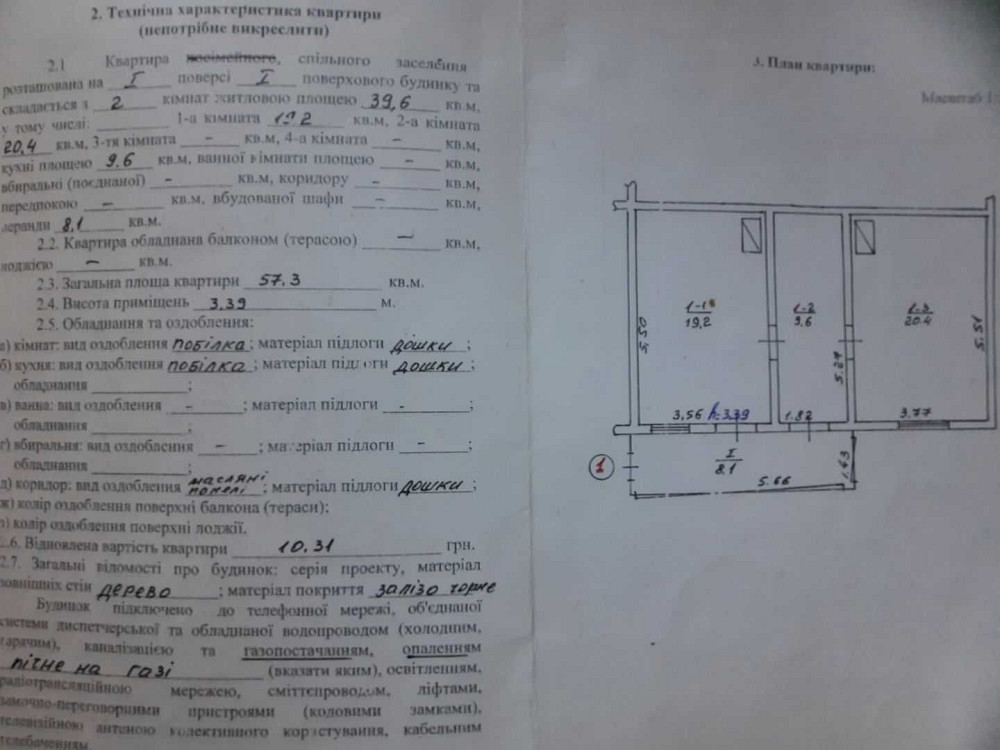 2. Технічна характеристика квартири
(непотрібне викреслити)
2.1 Квартира посімейного, спільного заселення
розташована на I поверсі I поверхового будинку та
складається з 2 кімнат житловою площею 39,6 кв.м,
у тому числі: 1-а кімната кв.м, 2-а кімната
20,4 кв.м, 3-тя кімната - кв.м, 4-а кімната - кв.м,
кухні площею 9.6 кв.м, ванної кімнати площею - кв.м,
вбиральні (поєднаної) - кв.м, коридору - кв.м,
передпокою - кв.м, вбудованої шафи - кв.м,
еранди 8,1 кв.м.
2.2. Квартира обладнана балконом (терасою) - кв.м,
лоджією - кв.м.
2.3. Загальна площа квартири 57,3 кв.м.
2.4. Висота приміщень 3,39 м.
2.5. Обладнання та оздоблення:
а) кімнат: вид оздоблення побілка; матеріал підлоги дошки;
б) кухня: вид оздоблення побілка; матеріал підлоги дошки;
обладнання ;
в) ванна: вид оздоблення - ; матеріал підлоги - ;
обладнання ;
г) вбиральня: вид оздоблення - ; матеріал підлоги - ;
обладнання ;
д) коридор: вид оздоблення масляні панелі; матеріал підлоги дошки;
ж) колір оздоблення поверхні балкона (тераси):
з) колір оздоблення поверхні лоджії.
2.6. Відновлена вартість квартири 10.31 грн.
2.7. Загальні відомості про будинок: серія проекту, матеріал
зовнішніх стін дерево; матеріал покриття залізо чорне
Будинок підключено до телефонної мережі, об'єднаної
системи диспетчерської та обладнаної водопроводом (холодним,
гарячим), каналізацією та газопостачанням, опаленням
пічне на газі (вказати яким), освітленням,
радіотрансляційною мережею, сміттєпроводом, ліфтами,
замочно-переговорними пристроями (кодовими замками),
телевізійною антеною колективного користування, кабельним
телебаченням
3. План квартири:
Масштаб 1:
1-1
19,2
1-2
9,6
1-3
20.4
5,50
5.27
5.51
3,56 h-3,39
1.82
3.77
1
I
8.1
5.66
1.43